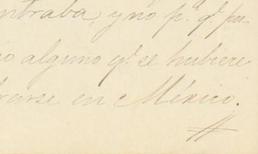 ntraba, y no p.ª q.e pu-
o alguno q.e se hubiere
rirse en México.